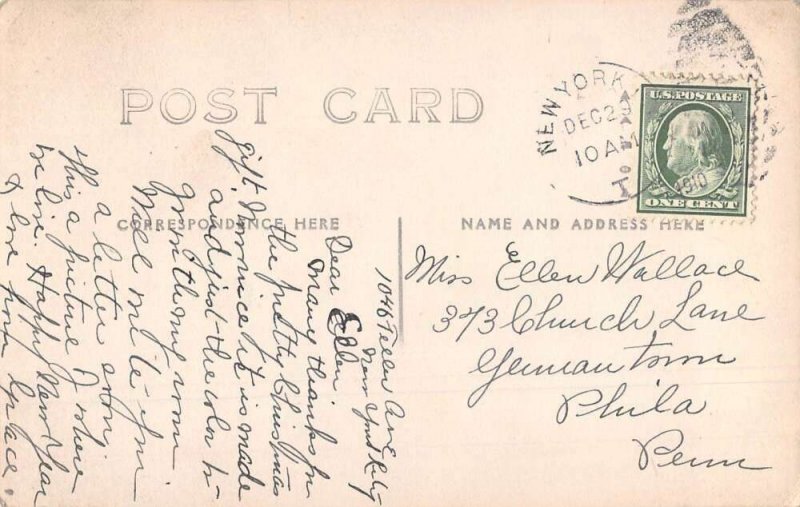 POST CARD
NEW YORK
DEC 2
10 AM
1910
U.S. POSTAGE
ONE CENT
CORRESPONDENCE HERE
NAME AND ADDRESS HERE
1046 Teller Ave
New York City
Dear Ellen
Many thanks for
the pretty Christmas
gift. How nice it is made
and just the color to
go in my room
Will write you
a letter soon,
this a picture of where
we live. Happy New Year
& love from Grace.
Miss Ellen Wallace
373 Church Lane
Germantown
Phila
Penn